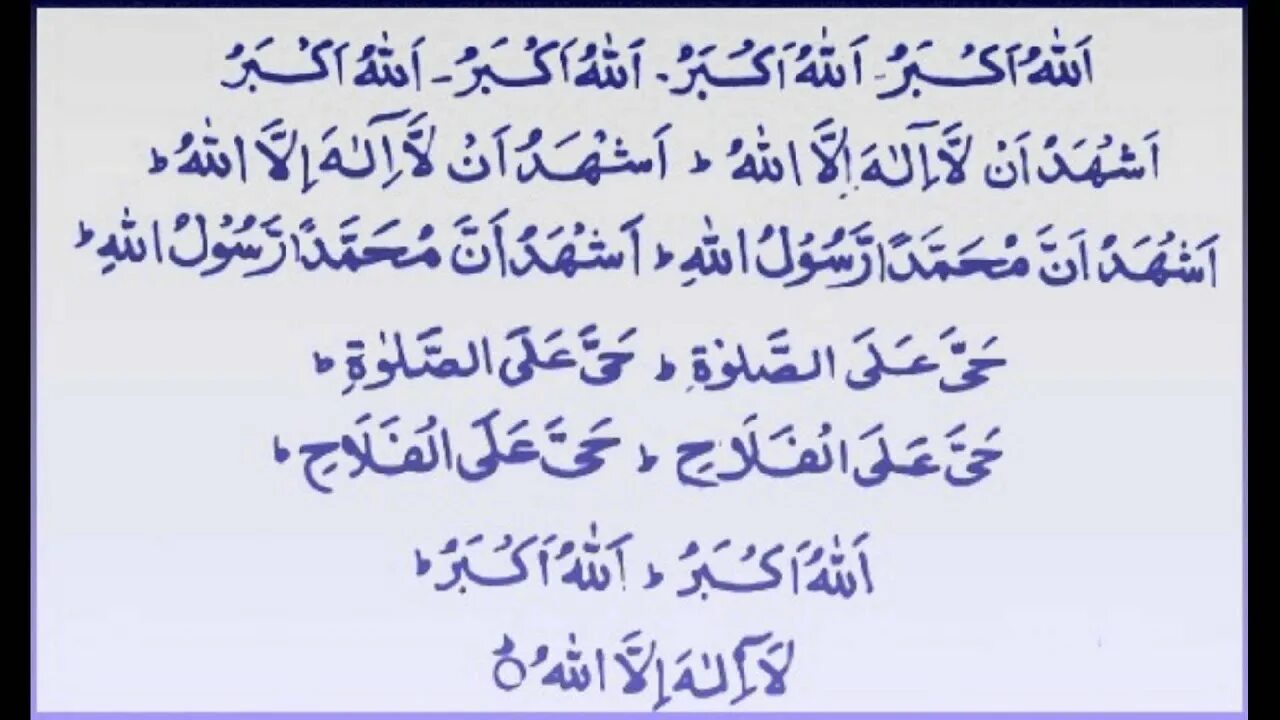 اَللّٰهُ اَكْبَرُ - اَللّٰهُ اَكْبَرُ - اَللّٰهُ اَكْبَرُ - اَللّٰهُ اَكْبَرُ
اَشْهَدُ اَنْ لَّاۤ اِلٰهَ اِلَّا اللّٰهُ ؕ اَشْهَدُ اَنْ لَّاۤ اِلٰهَ اِلَّا اللّٰهُ ؕ
اَشْهَدُ اَنَّ مُحَمَّدًا رَّسُوْلُ اللّٰهِ ؕ اَشْهَدُ اَنَّ مُحَمَّدًا رَّسُوْلُ اللّٰهِ ؕ
حَیَّ عَلَی الصَّلٰوةِ ؕ حَیَّ عَلَی الصَّلٰوةِ ؕ
حَیَّ عَلَی الْفَلَاحِ ؕ حَیَّ عَلَی الْفَلَاحِ ؕ
اَللّٰهُ اَكْبَرُ ؕ اَللّٰهُ اَكْبَرُ ؕ
لَاۤ اِلٰهَ اِلَّا اللّٰهُ ؕ○